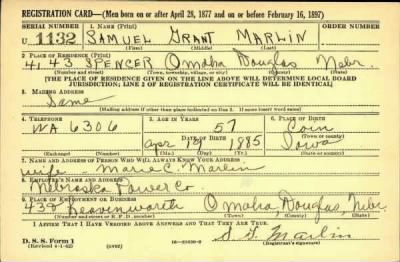 REGISTRATION CARD—(Men born on or after April 28, 1877 and on or before February 16, 1897)
SERIAL NUMBER 1. NAME (Print) ORDER NUMBER
U 1132 SAMUEL GRANT MARLIN
(First) (Middle) (Last)
2. PLACE OF RESIDENCE (Print)
4143 SPENCER Omaha Douglas Nebr.
(Number and street) (Town, township, village, or city) (County) (State)
[THE PLACE OF RESIDENCE GIVEN ON THE LINE ABOVE WILL DETERMINE LOCAL BOARD
JURISDICTION; LINE 2 OF REGISTRATION CERTIFICATE WILL BE IDENTICAL]
3. MAILING ADDRESS
Same
[Mailing address if other than place indicated on line 2. If same insert word same]
4. TELEPHONE 5. AGE IN YEARS 6. PLACE OF BIRTH
WA 6306 57 Coin
DATE OF BIRTH (Town or county)
Apr 18 1885 Iowa
(Exchange) (Number) (Mo.) (Day) (Yr.) (State or country)
7. NAME AND ADDRESS OF PERSON WHO WILL ALWAYS KNOW YOUR ADDRESS
wife - Marie C. Marlin
8. EMPLOYER'S NAME AND ADDRESS
Nebraska Power Co.
9. PLACE OF EMPLOYMENT OR BUSINESS
Leavenworth Omaha, Douglas, Nebr
(Number and street or R. F. D. number) (Town) (County) (State)
I AFFIRM THAT I HAVE VERIFIED ABOVE ANSWERS AND THAT THEY ARE TRUE.
S G Marlin
D. S. S. Form 1
(Revised 4-1-42) (over) (Registrant's signature)